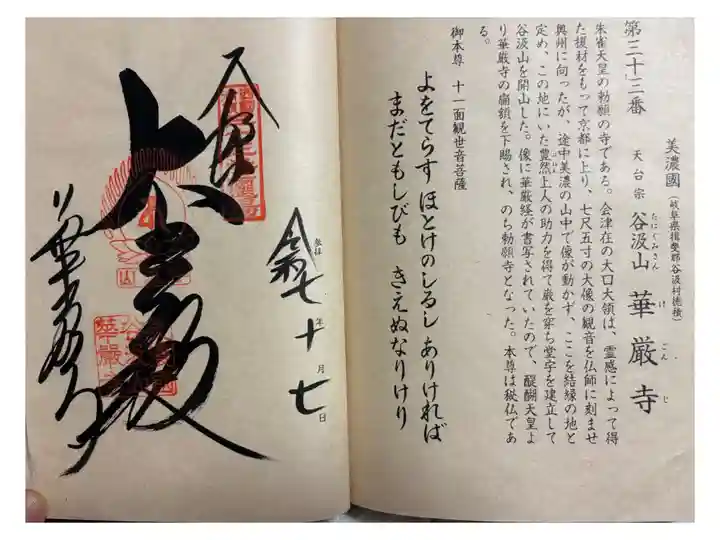 第三十三番
美濃國(岐阜県揖斐郡谷汲村徳積)
天台宗 谷汲山 華厳寺
たにぐみさん けごんじ
朱雀天皇の勅願の寺である。会津在の大口大領は、霊感によって得
た援材をもって京都に上り、七尺五寸の大像の観音を仏師に刻ませ
奥州に向ったが、途中美濃の山中で像が動かず、ここを結縁の地と
定め、この地にいた豊然上人の助力を得て巌を穿ち堂宇を建立して
谷汲山を開山した。像に華厳経が書写されていたので、醍醐天皇よ
り華厳寺の扁額を下賜され、のち勅願寺となった。本尊は秘仏であ
る。
御本尊 十一面観世音菩薩
よをてらす ほとけのしるし ありければ
まだともしびも きえぬなりけり
令和七年十月七日